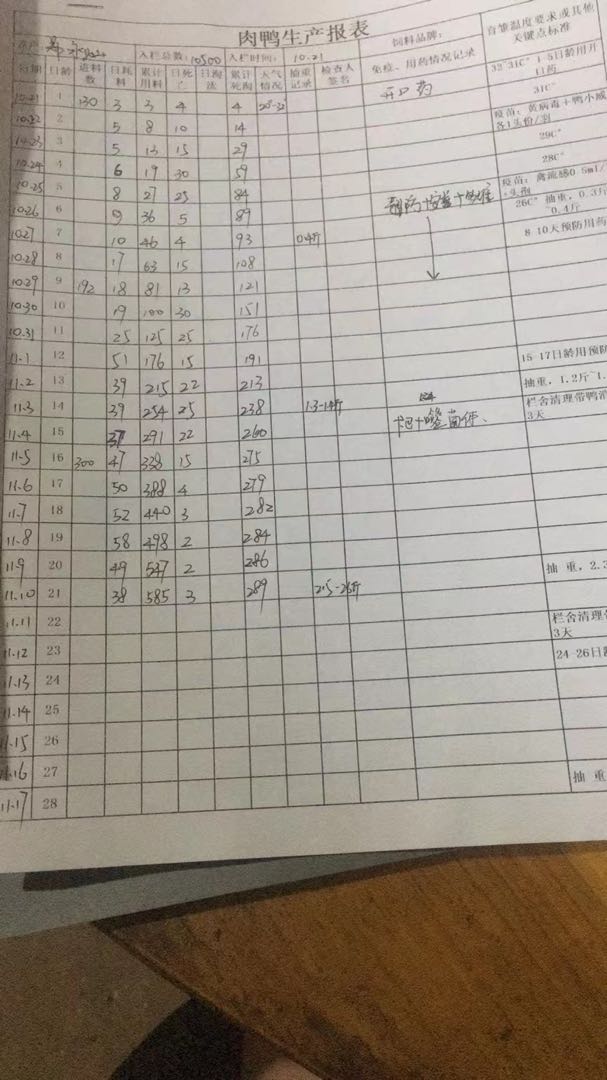 肉鸭生产报表
入栏总数: 10500 入栏时间: 10.21 饲料品牌:
育雏温度要求或其他关键点标准
日期 日龄 进料数 日耗料 累计用料 日死亡 日淘汰 累计死淘 天气情况 抽重记录 检查人签名 免疫、用药情况记录
32~31C° 1-5日龄用开口药
10.21 1 130 3 3 4 4 开口药 31C°
10.22 2 5 8 10 14 疫苗: 黄病毒+鸭小
各1头份/羽
10.23 3 5 13 15 29 29C°
10.24 4 6 19 30 59 28C°
10.25 5 8 27 25 84 疫苗: 禽流感0.5ml/
10.26 6 9 36 5 89 26C° 抽重, 0.3斤
0.4斤
10.27 7 10 46 4 93 0.4斤 8-10天预防用药
10.28 8 17 63 15 108
10.29 9 192 18 81 13 121
10.30 10 19 100 30 151
10.31 11 25 125 25 176
11.1 12 51 176 15 191 15-17日龄用预防
11.2 13 39 215 22 213 抽重, 1.2斤~1.
11.3 14 39 254 25 238 1.3-1.4斤 栏舍清理带鸭消
3天
11.4 15 37 291 22 260
11.5 16 300 47 338 15 275
11.6 17 50 388 4 279
11.7 18 52 440 3 282
11.8 19 58 498 2 284
11.9 20 49 547 2 286 抽重, 2.3
11.10 21 38 585 3 289 2.5-2.6斤
11.11 22 栏舍清理带
3天
11.12 23 24-26日龄
11.13 24
11.14 25
11.15 26
11.16 27 抽重
11.17 28